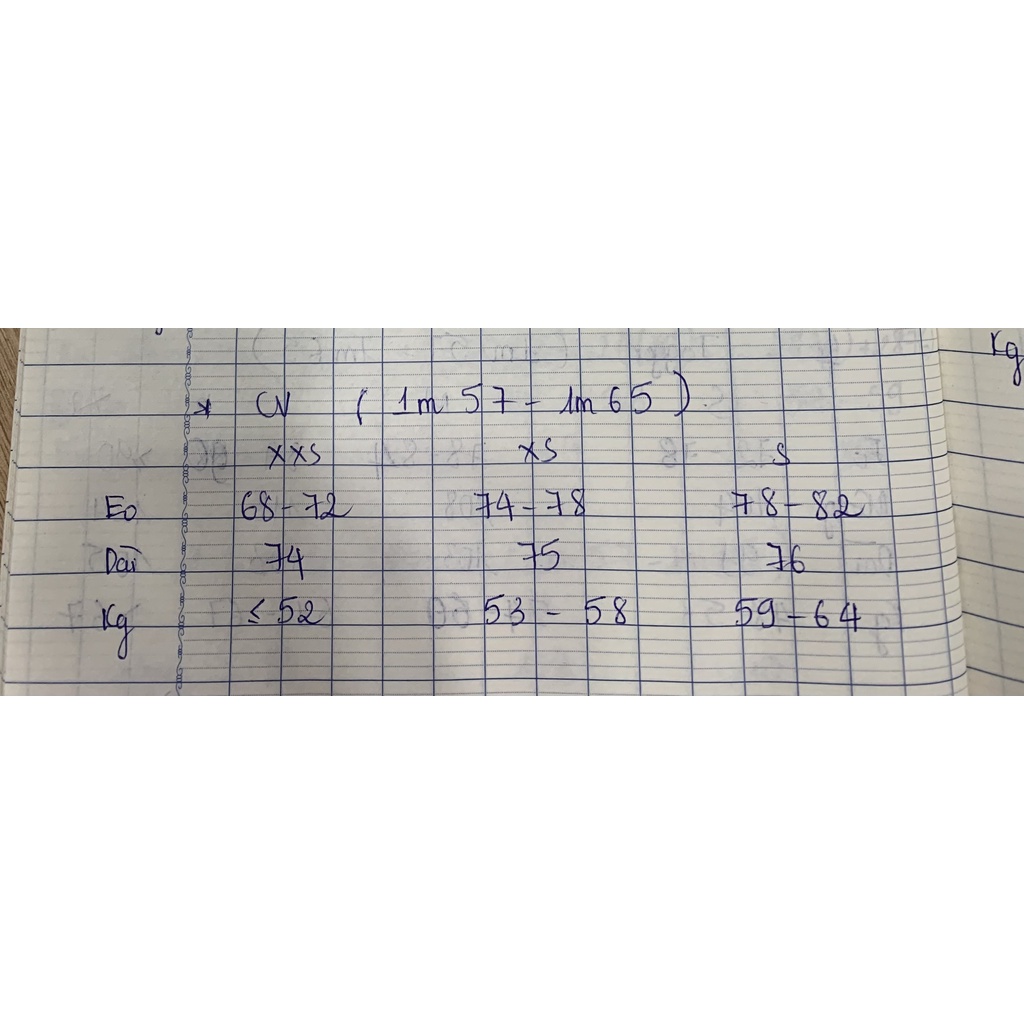 * CV ( 1m 57 - 1m 65 )
XXS XS S
Eo 68 - 72 74 - 78 78 - 82
Dài 74 75 76
Kg ≤ 52 53 - 58 59 - 64
Kg